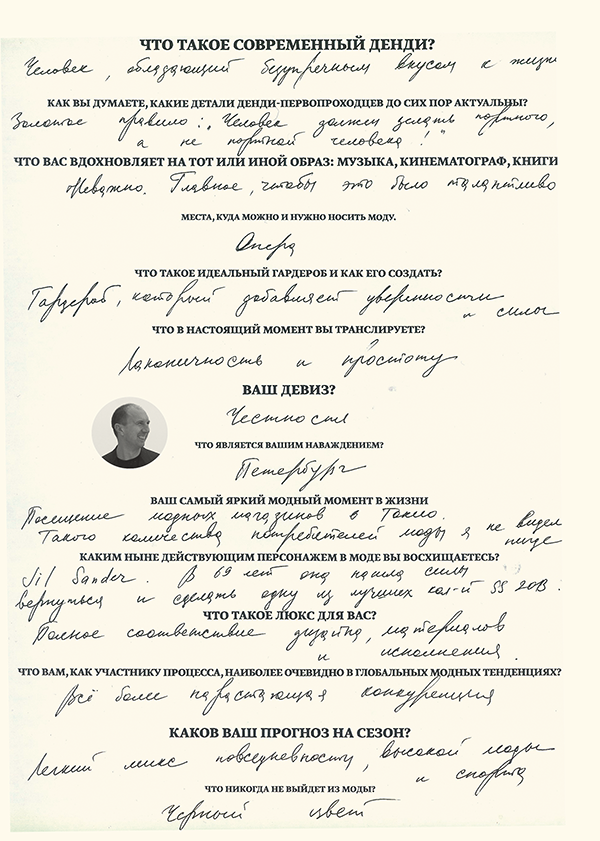 ЧТО ТАКОЕ СОВРЕМЕННЫЙ ДЕНДИ?
Человек, обладающий безупречным вкусом к жизни
КАК ВЫ ДУМАЕТЕ, КАКИЕ ДЕТАЛИ ДЕНДИ-ПЕРВОПРОХОДЦЕВ ДО СИХ ПОР АКТУАЛЬНЫ?
Золотое правило: „Человек должен делать портного,
а не портной человека!"
ЧТО ВАС ВДОХНОВЛЯЕТ НА ТОТ ИЛИ ИНОЙ ОБРАЗ: МУЗЫКА, КИНЕМАТОГРАФ, КНИГИ
Неважно. Главное, чтобы это было талантливо
МЕСТА, КУДА МОЖНО И НУЖНО НОСИТЬ МОДУ.
Опера
ЧТО ТАКОЕ ИДЕАЛЬНЫЙ ГАРДЕРОБ И КАК ЕГО СОЗДАТЬ?
Гардероб, который добавляет уверенности
и силы
ЧТО В НАСТОЯЩИЙ МОМЕНТ ВЫ ТРАНСЛИРУЕТЕ?
Лаконичность и простоту
ВАШ ДЕВИЗ?
Честность
ЧТО ЯВЛЯЕТСЯ ВАШИМ НАВАЖДЕНИЕМ?
Петербург
ВАШ САМЫЙ ЯРКИЙ МОДНЫЙ МОМЕНТ В ЖИЗНИ
Посещение модных магазинов в Токио.
Такого количества потребителей моды я не видел
нигде
КАКИМ НЫНЕ ДЕЙСТВУЮЩИМ ПЕРСОНАЖЕМ В МОДЕ ВЫ ВОСХИЩАЕТЕСЬ?
Jil Sander. В 69 лет она нашла силы
вернуться и сделать одну из лучших кол-й SS 2013.
ЧТО ТАКОЕ ЛЮКС ДЛЯ ВАС?
Полное соответствие дизайна, материалов
и исполнения.
ЧТО ВАМ, КАК УЧАСТНИКУ ПРОЦЕССА, НАИБОЛЕЕ ОЧЕВИДНО В ГЛОБАЛЬНЫХ МОДНЫХ ТЕНДЕНЦИЯХ?
Всё более нарастающая конкуренция
КАКОВ ВАШ ПРОГНОЗ НА СЕЗОН?
Легкий микс повседневности, высокой моды
и спорта
ЧТО НИКОГДА НЕ ВЫЙДЕТ ИЗ МОДЫ?
Черный цвет